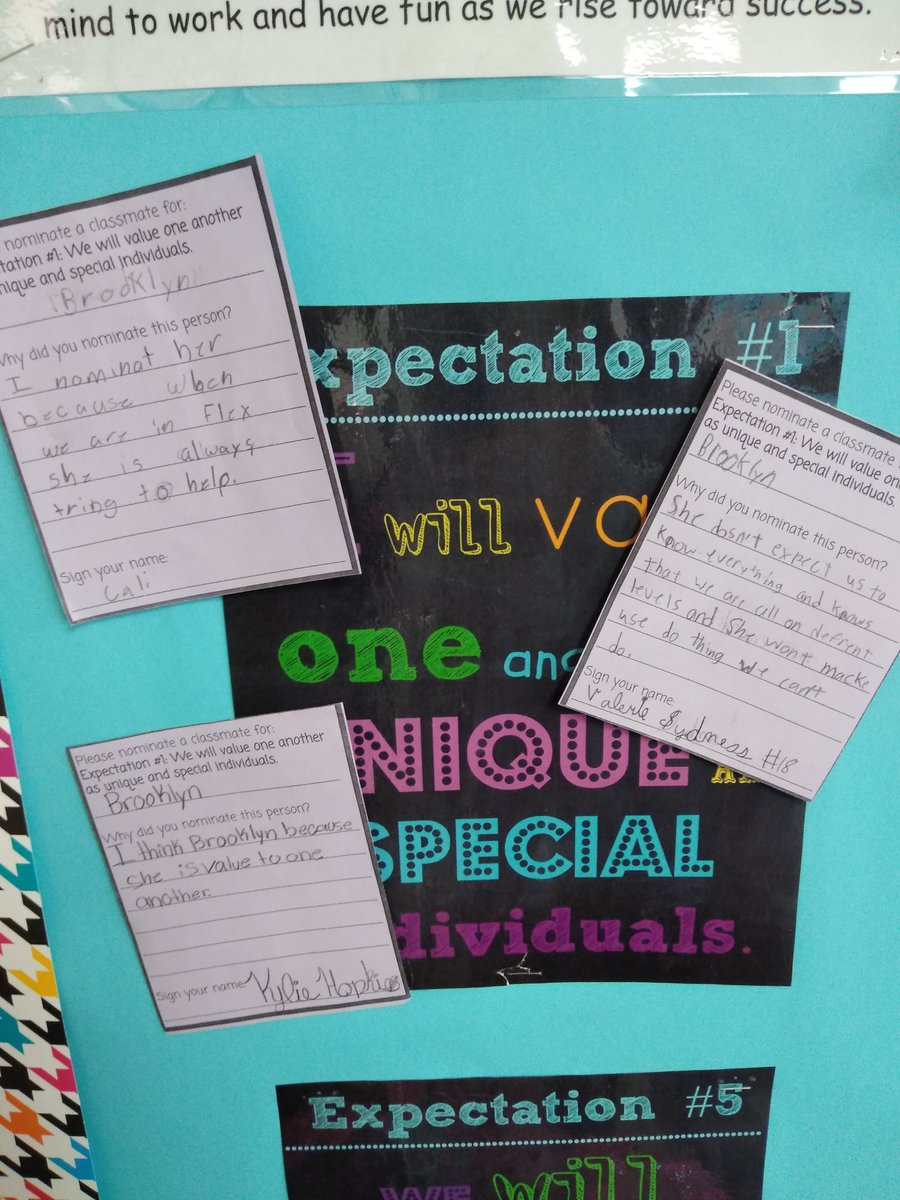 mind to work and have fun as we rise toward success.
nominate a classmate for:
tation #1: We will value one another
nique and special individuals.
Brooklyn
Why did you nominate this person?
I nominat her
because when
we are in Flex
she is always
tring to help.
Sign your name.
Cali
xpectation #1
will va
one and
NIQUE
SPECIAL
dividuals.
Please nominate a classmate
Expectation #1: We will value one
as unique and special individuals.
Brooklyn
Why did you nominate this person?
She dosn't expect us to
know everything and knows
that we are all on defrent
levels and she wont macke
use do thing we can't
do.
Sign your name.
Valerie Sydness #18
Please nominate a classmate for:
Expectation #1: We will value one another
as unique and special individuals.
Brooklyn
Why did you nominate this person?
I think Brooklyn because
she is value to one
another.
Sign your name Kylie Hopkins
Expectation #5
we will